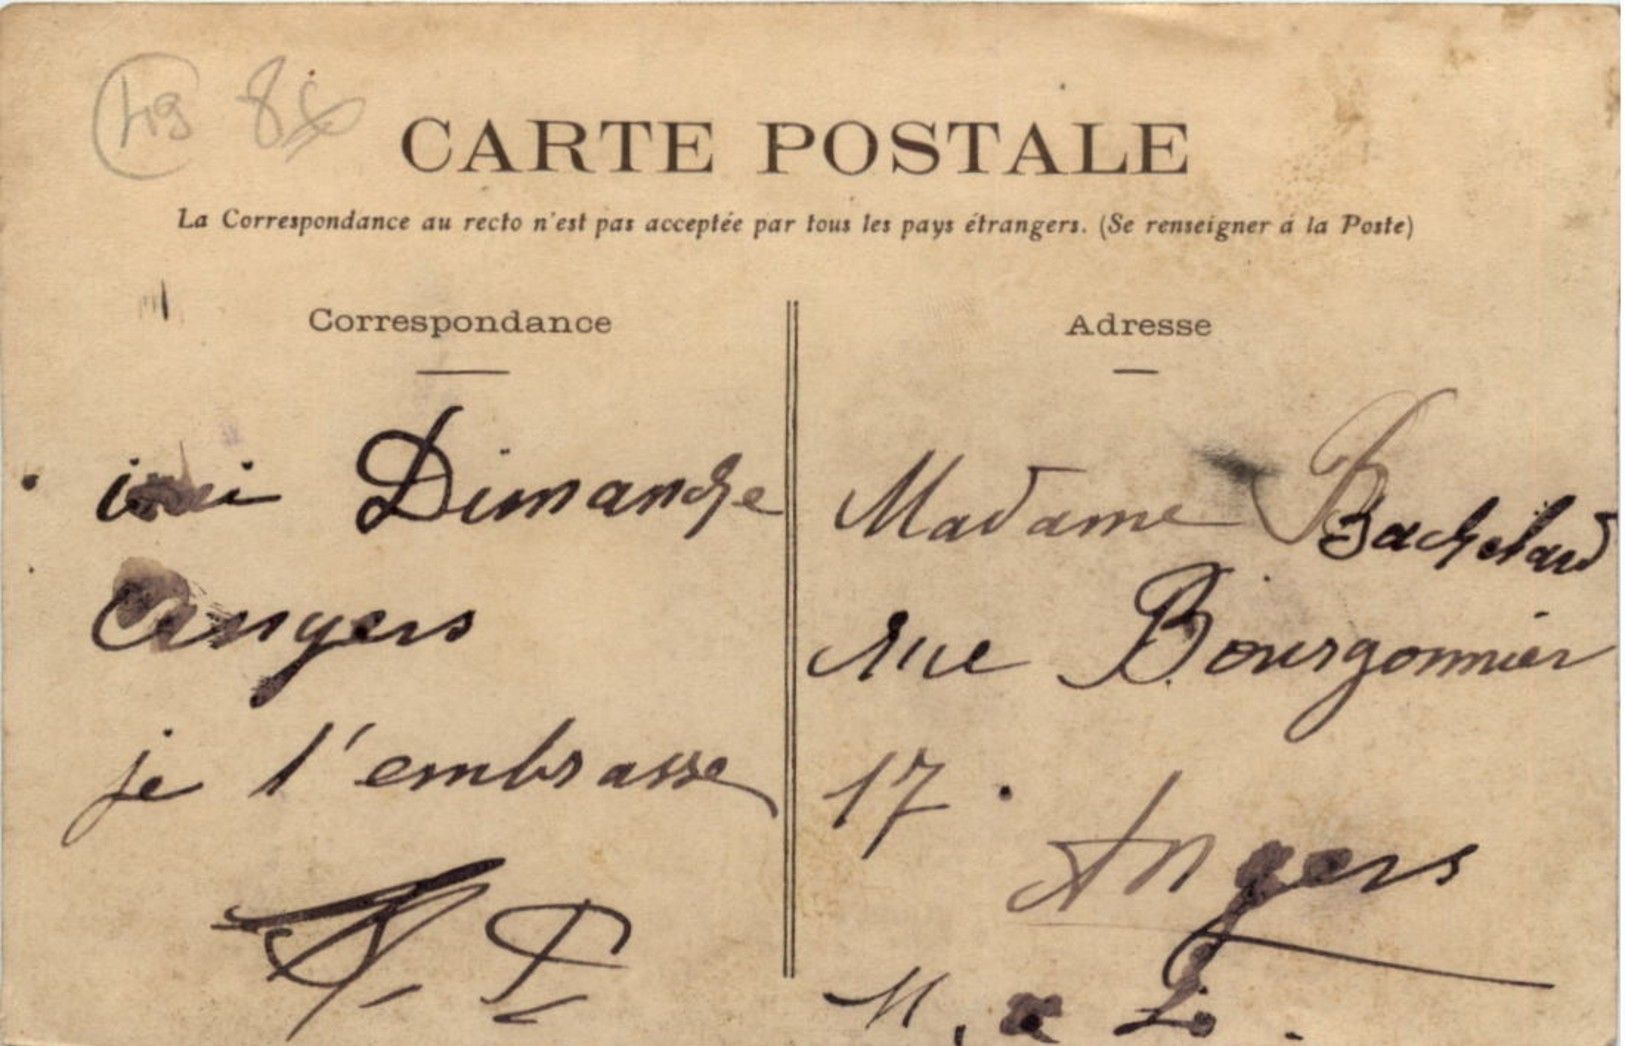 CARTE POSTALE
La Correspondance au recto n'est pas acceptée par tous les pays étrangers. (Se renseigner à la Poste)
Correspondance
Dimanche
Angers
je l'embrasse
Adresse
Madame Bachelard
Rue Bourgonnier
17.
Angers
M. & L.